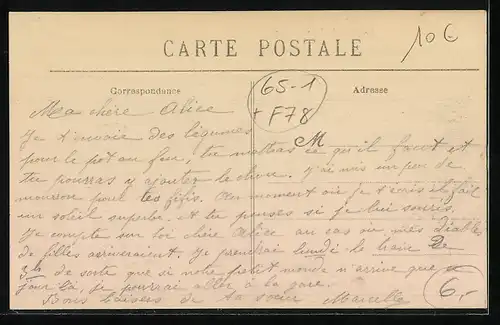 CARTE POSTALE
10€
Correspondance
Adresse
65-1
+ F78
M
Ma chère Alice
Je t'envoie des légumes
pour le pot au feu, tu mettras ce qu'il faut et
tu pourras y ajouter le chou. J'ai mis un peu de
mouron pour les fifis. Au moment où je t'écris il fait
un soleil superbe, et tu penses si je lui souris.
Je compte sur toi chère Alice au cas où mes diables
de filles arriveraient. Je prendrai lundi le train de
3h de sorte que si notre petit monde n'arrive que ce
jour là, je pourrai aller à la gare.
Bons baisers de ta sœur Marcelle
6,-